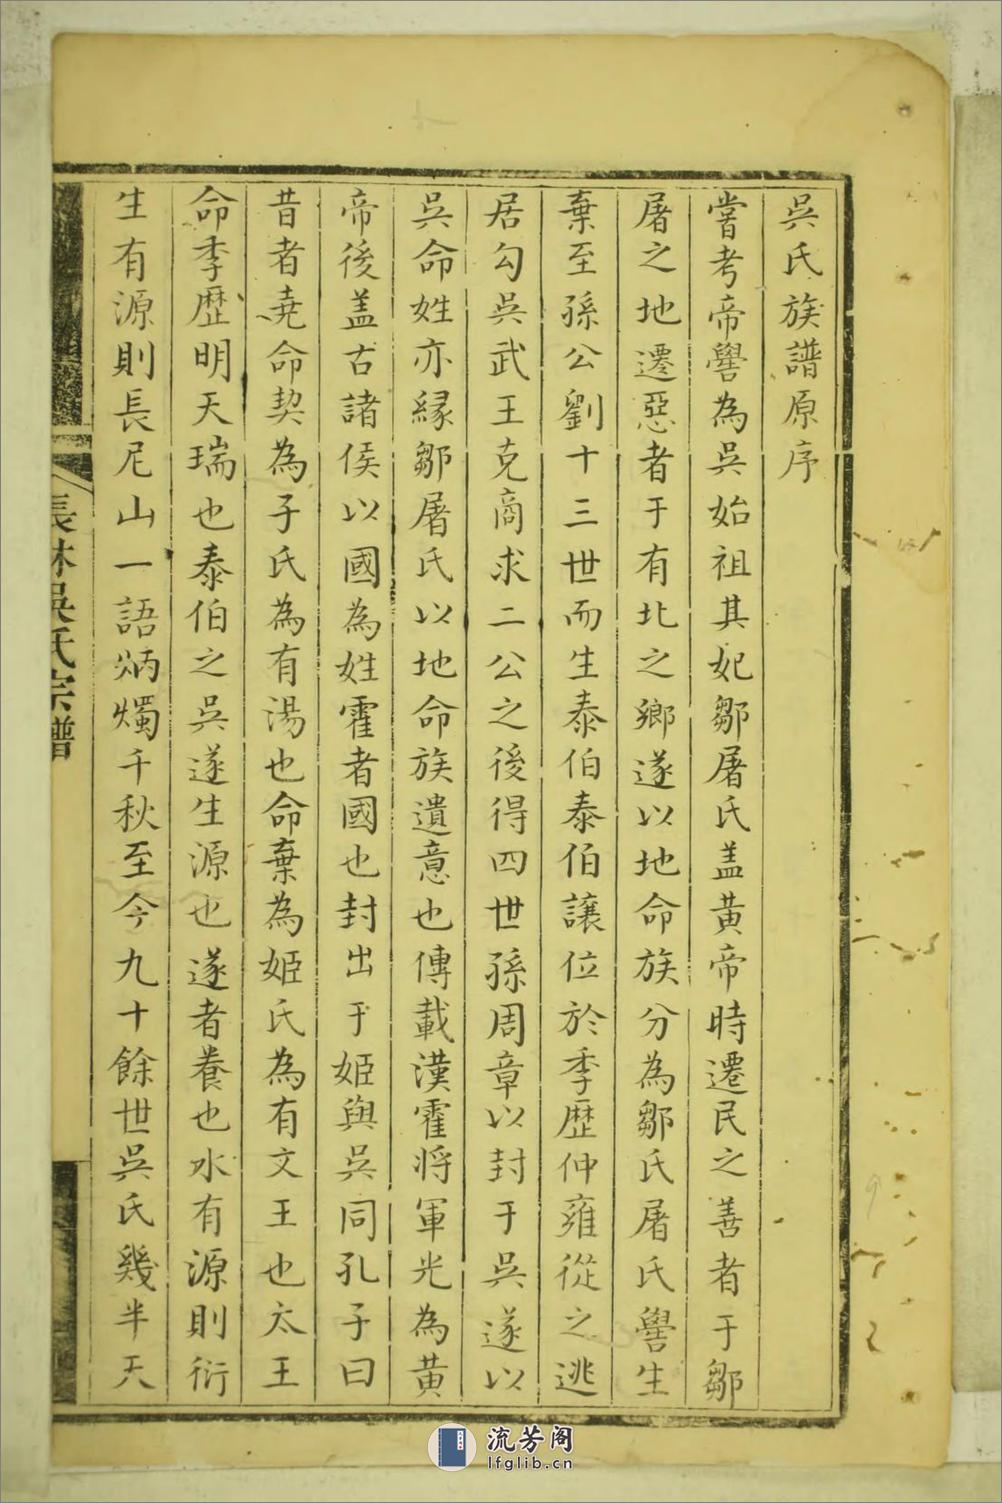 吳氏族譜原序
嘗考帝嚳為吳始祖其妃鄒屠氏盖黃帝時遷民之善者于鄒
屠之地遷惡者于有北之鄉遂以地命族分為鄒氏屠氏嚳生
棄至孫公劉十三世而生泰伯泰伯讓位於季歷仲雍從之逃
居勾吳武王克商求二公之後得四世孫周章以封于吳遂以
吳命姓亦緣鄒屠氏以地命族遺意也傳載漢霍将軍光為黃
帝後盖古諸侯以國為姓霍者國也封出于姬與吳同孔子曰
昔者堯命契為子氏為有湯也命棄為姬氏為有文王也太王
命季歷明天瑞也泰伯之吳遂生源也遂者養也水有源則衍
生有源則長尼山一語炳燭千秋至今九十餘世吳氏幾半天
長林吳氏宗譜
流芳阁
lfglib.cn